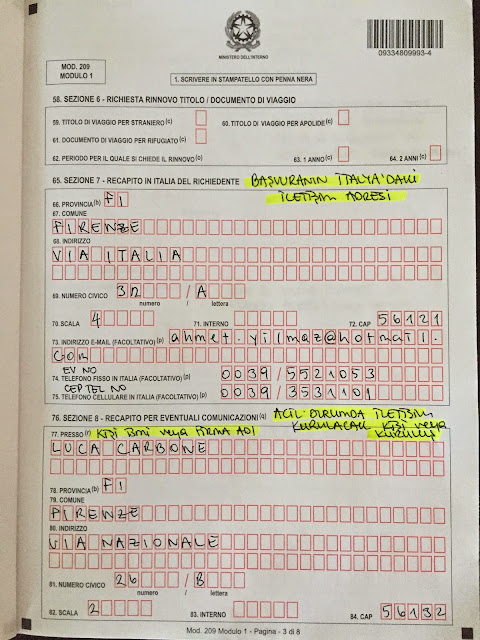 MINISTERO DELL'INTERNO
09334809993-4
MOD. 209
MODULO 1
1. SCRIVERE IN STAMPATELLO CON PENNA NERA
58. SEZIONE 6 - RICHIESTA RINNOVO TITOLO / DOCUMENTO DI VIAGGIO
59. TITOLO DI VIAGGIO PER STRANIERO (c)
60. TITOLO DI VIAGGIO PER APOLIDE (c)
61. DOCUMENTO DI VIAGGIO PER RIFUGIATO (c)
62. PERIODO PER IL QUALE SI CHIEDE IL RINNOVO (c)
63. 1 ANNO (c)
64. 2 ANNI (c)
65. SEZIONE 7 - RECAPITO IN ITALIA DEL RICHIEDENTE BAŞVURANIN İTALYA'DAKİ
İLETİŞİM ADRESİ
66. PROVINCIA (b) FI
67. COMUNE
FIRENZE
68. INDIRIZZO
VIA ITALIA
69. NUMERO CIVICO 32 / A
numero / lettera
70. SCALA 4 71. INTERNO 72. CAP 56121
73. INDIRIZZO E-MAIL (FACOLTATIVO) (p) ahmet.yilmaz@hotmail.
com
EV NO
74. TELEFONO FISSO IN ITALIA (FACOLTATIVO) (p) 0039 / 5521053
CEP TEL NO
75. TELEFONO CELLULARE IN ITALIA (FACOLTATIVO) (p) 0039 / 3531101
76. SEZIONE 8 - RECAPITO PER EVENTUALI COMUNICAZIONI (q) ACİL DURUMDA İLETİŞİM
KURULACAK KİŞİ veya
KURULUŞ
77. PRESSO (r) KİŞİ İSMİ veya FİRMA ADI
LUCA CARBONE
78. PROVINCIA (b) FI
79. COMUNE
FIRENZE
80. INDIRIZZO
VIA NAZIONALE
81. NUMERO CIVICO 26 / B
numero / lettera
82. SCALA 2 83. INTERNO 84. CAP 56132
Mod. 209 Modulo 1 - Pagina - 3 di 8